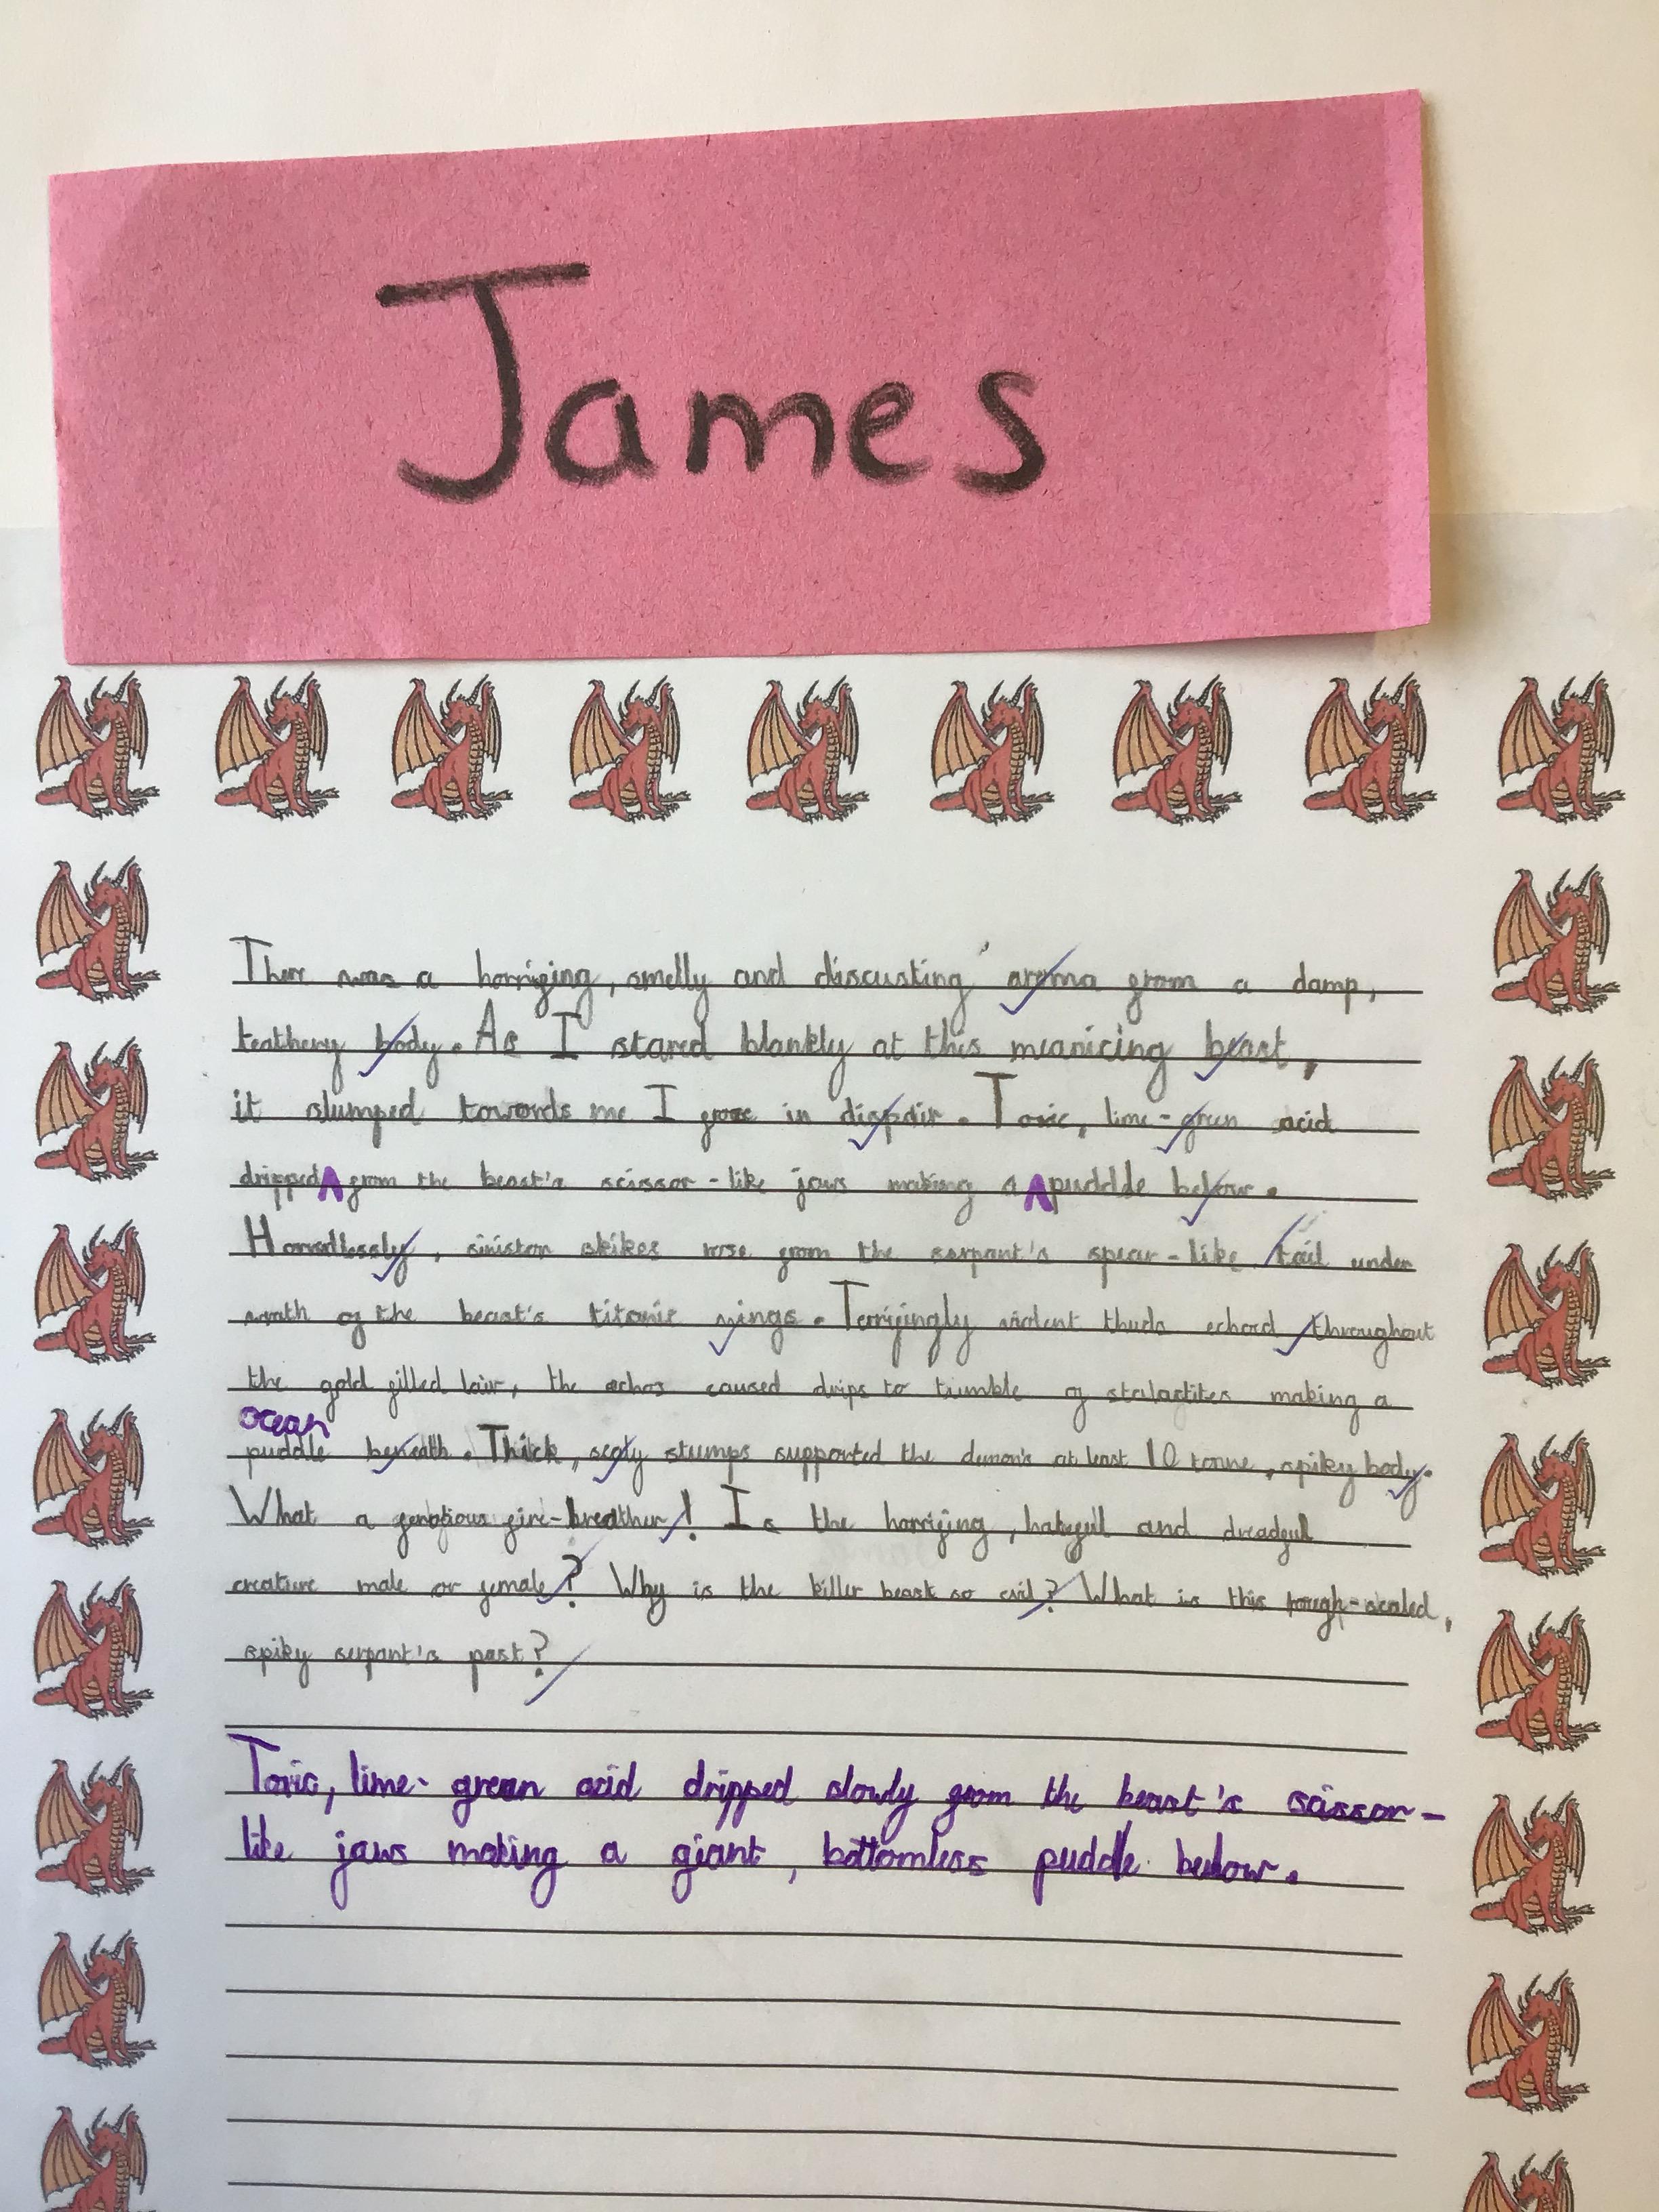 James
There was a horrifing, smelly and discusting aroma from a damp,
leathery body. As I stared blankly at this meanicing beast,
it slumped towards me I froze in dispair. Toxic, lime-green acid
dripped from the beast's scissor-like jaws making a puddle below.
, sinister skikes rose from the serpant's spear-like tail under
neath of the beast's titanic wings. Terrifingly violent thuds echord throughout
the gold filled lair, the echos caused drips to tumble of stalactites making a
ocean
puddle beneath. Thick, scaly stumps supported the demon's at least 10 tonne, spiky body.
What a fire-breather! Is the horrifing, hateful and dreadful
creature male or female? Why is the killer beast so evil? What is this rough-scaled,
spiky serpant's past?
Toxic, lime-green acid dripped slowly from the beast's scissor-
like jaws making a giant, bottomless puddle below.